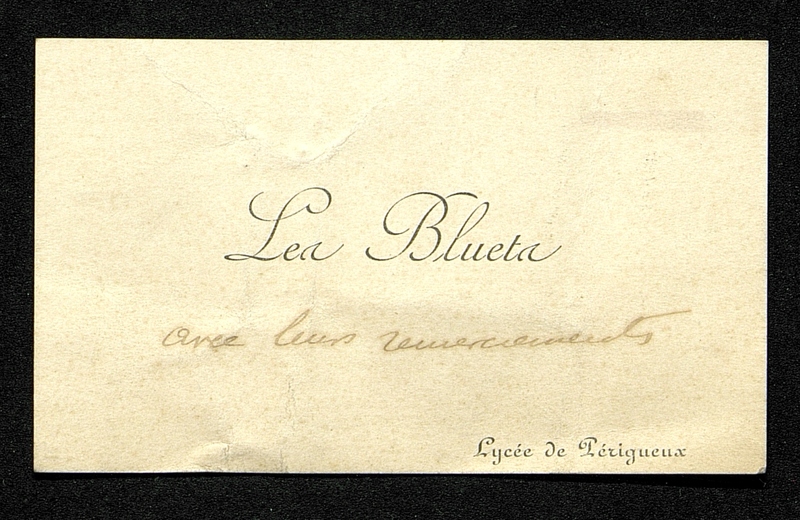 Les Blueta
avec leurs remerciements
Lycée de Périgueux